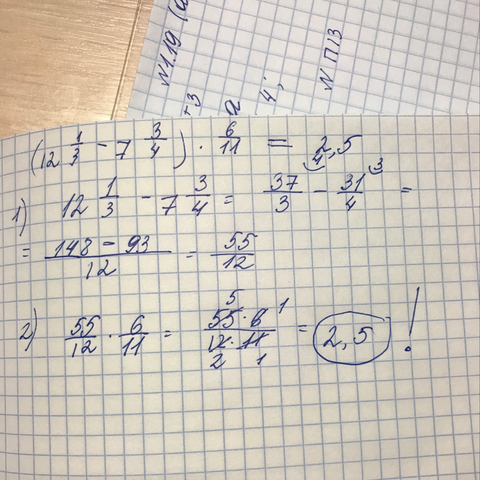 N1.19 (a
+3
a
4;
N П13
(12 1/3 - 7 3/4) · 6/11 = 2,5
1) 12 1/3 - 7 3/4 = 37/3 (4 - 31/4 (3 =
= 148 - 93/12 = 55/12
2) 55/12 · 6/11 = 55 5 · 6 1/12 2 · 11 1 = 2,5 !